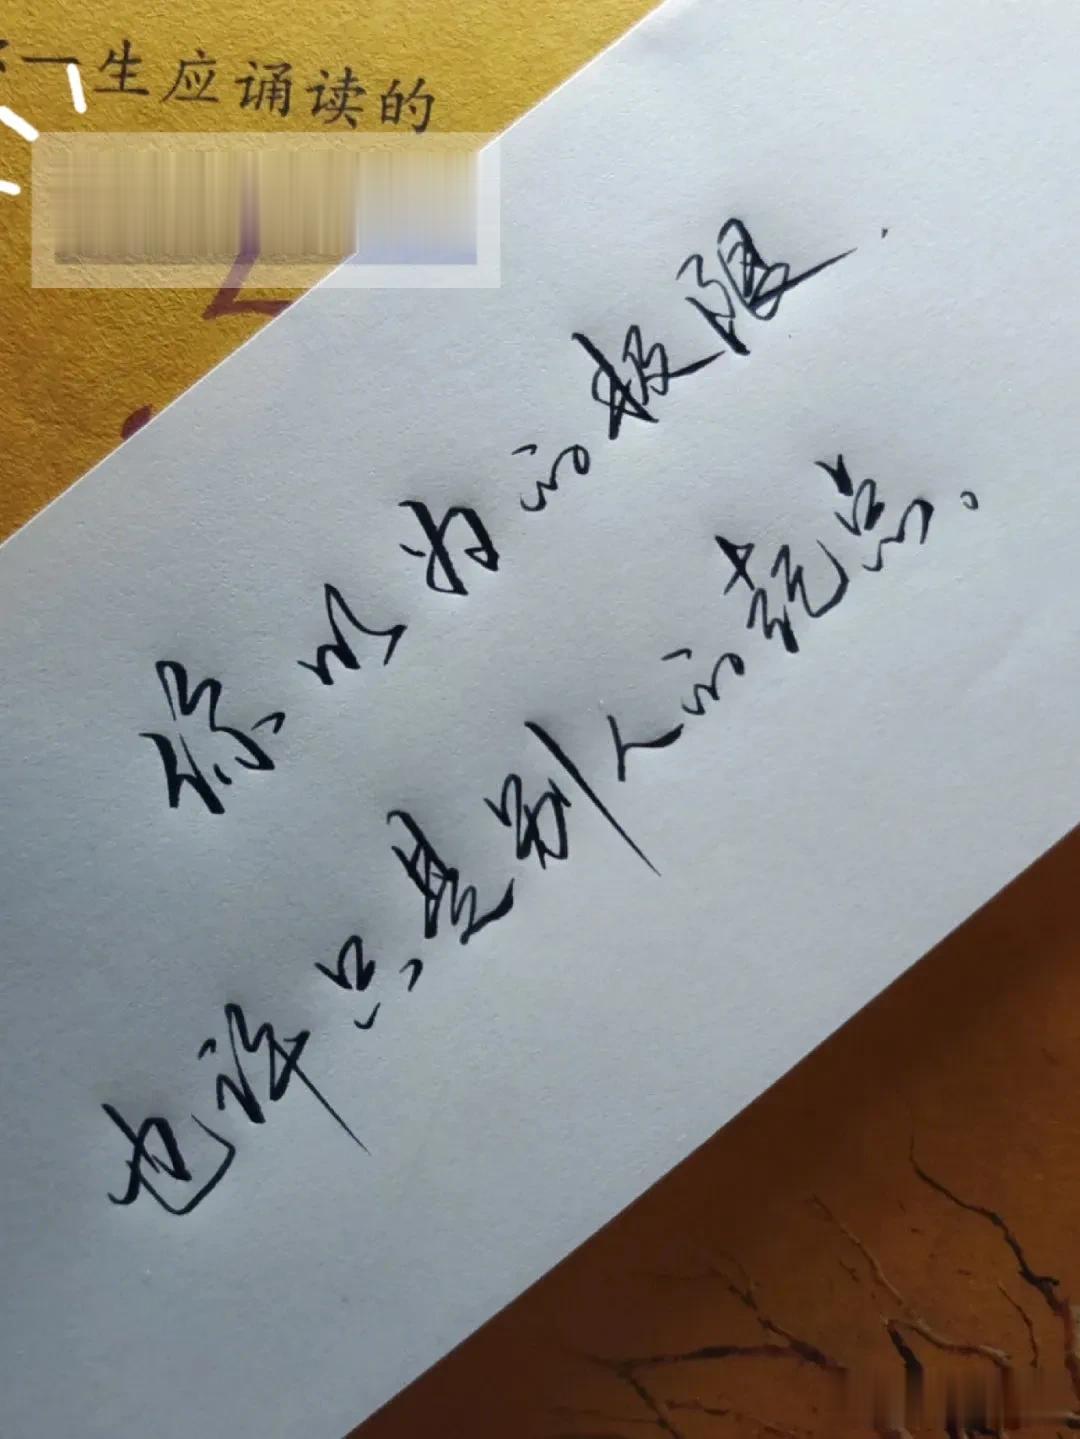 一生应诵读的
你以为的极限,
也许只是别人的起点。